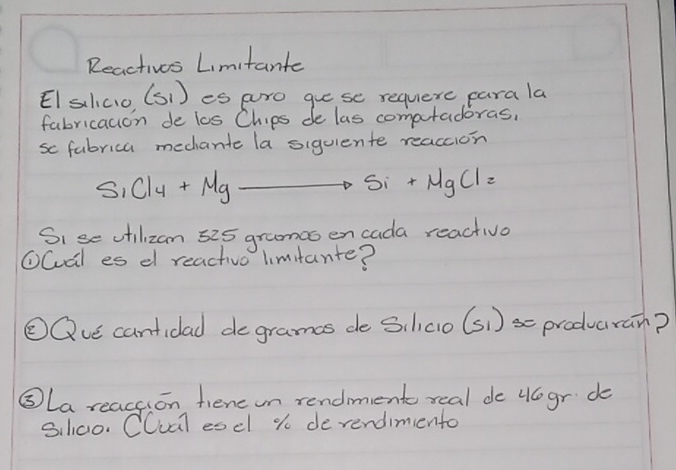 Reactivos Limitante
El silicio, (Si) es puro que se requiere para la
fabricación de los Chips de las computadoras,
se fabrica mediante la siguiente reacción
SiCl4 + Mg → Si + MgCl2
Si se utilizan 525 gramos en cada reactivo
① Cuál es el reactivo limitante?
② Qué cantidad de gramos de Silicio (Si) se producirán?
③ La reacción tiene un rendimiento real de 46 gr. de
Silicio. CCuál es el % de rendimiento